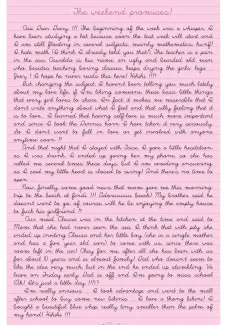 The weekend promises!
Dear Dear Diary !!! The beginning of the week was a whisper. I
have been studying a lot because soon the test week will start and
I am still floating in several subjects, mainly mathematics, humf!
I hate math (I think I already told you that?). The teacher is a pain
in the ass. Osvaldo is his name, an ugly and bearded old man
who besides teaching boring classes, keeps drying the girls' legs ...
Gross! I hope he never reads this here! Hihihi !!!!!
But changing the subject, I haven't been telling you much lately
about my love life, if I'm liking someone, these basic little things
that every girl loves to share. In fact it makes me miserable that I
don't write anything about what I feel and that silly feeling that it
is to love. I learned that having self-love is much more important
and since I took the Dennis horn I have taken it very seriously
so I don't want to fall in love or get involved with anyone
anytime soon !!
And that night that I stayed with Jace, I gave a little hesitation,
as I was drunk, I ended up giving him my phone, as she has
called me several times these days, but I am avoiding answering,
as I said my little heart is closed to swing! And there's no time to
open ...
Now finally some good news that mom gave me this morning:
trip to the beach at finals !!! Adorouuuuu beach! My brother said he
doesn't want to go, of course, will he be enjoying the empty house
to fuck his girlfriend !!
Our maid Cleusa was in the kitchen at the time and said to
Mom that she had never seen the sea, I think that with pity she
ended up inviting Cleusa and her little boy (she is a single mother
and has a five year old son) to come with us, since there was
room left in the car! Okay for me, after all she has been with us
for about 10 years and is almost family! Dad who doesn't seem to
like the idea very much, but in the end he ended up absorbing. We
leave on Friday early, Dad is off and I'm going to miss school
(Oh! It's just a little day !!!!).
I'm really anxious ... I took advantage and went to the mall
after school to buy some new bikinis ... I love a thong bikini! I
bought a beautiful blue whip, really tiny, smaller than the palm of
my hand! Hihihi !!!